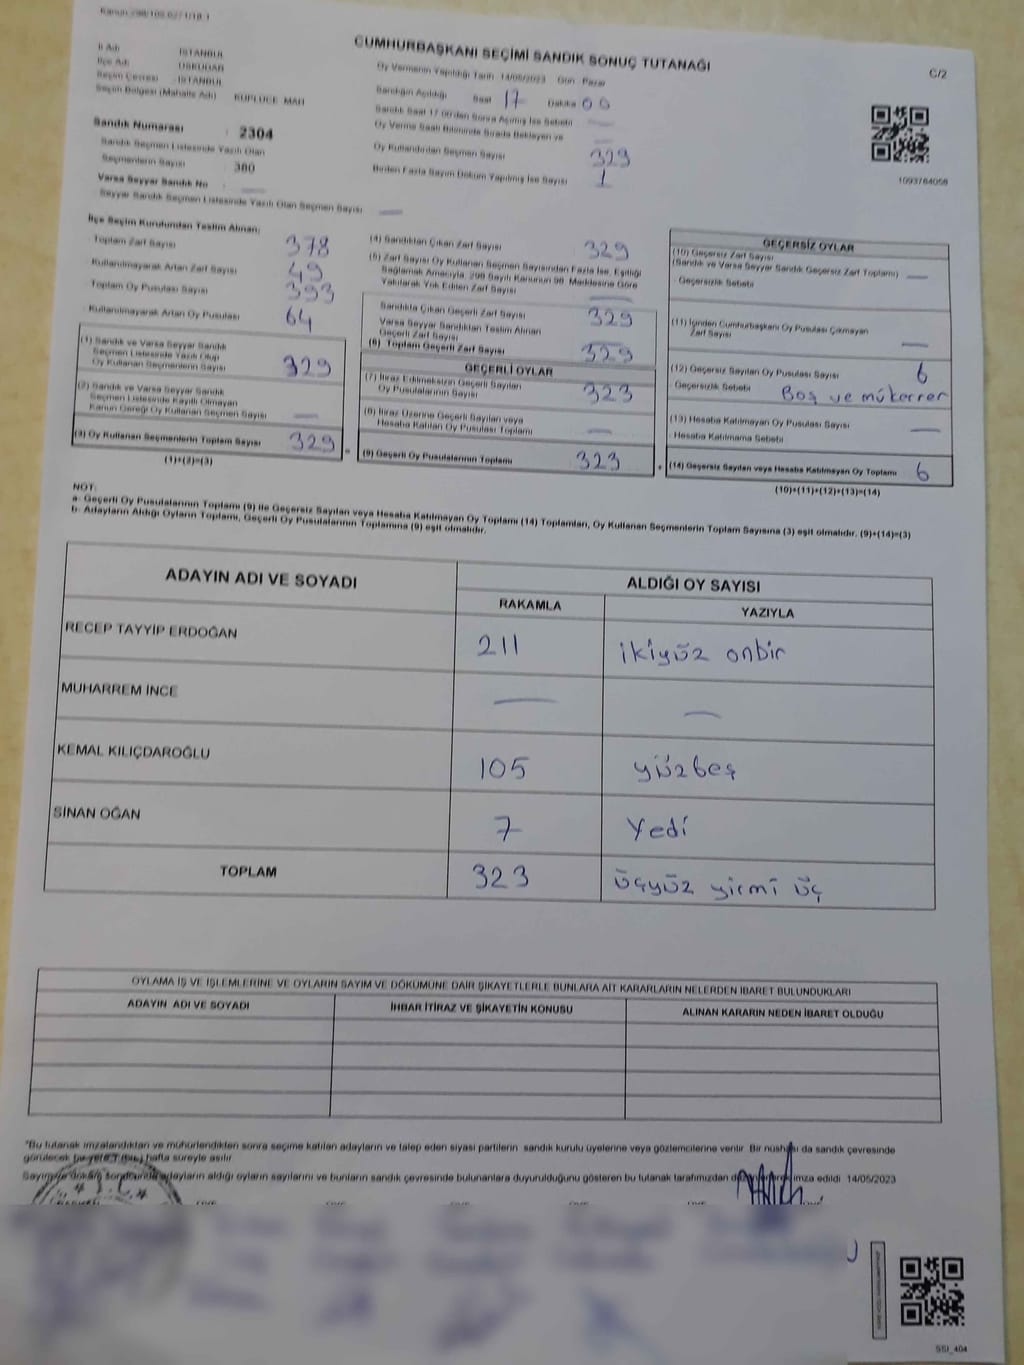 CUMHURBAŞKANI SEÇİMİ SANDIK SONUÇ TUTANAĞI
C/2
İl Adı : İSTANBUL
İlçe Adı : ÜSKÜDAR
Seçim Çevresi : İSTANBUL
Seçim Bölgesi (Mahalle Adı) : KÜPLÜCE MAH
Oy Vermenin Yapıldığı Tarih 14/05/2023 Gün Pazar
Sandığın Açıldığı Saat 17 Dakika 00
Sandık Saat 17.00'den Sonra Açılmış İse Sebebi —
Oy Verme Saati Bitiminde Sırada Bekleyen ve
Oy Kullandırılan Seçmen Sayısı 329
Birden Fazla Sayım Döküm Yapılmış İse Sayısı 1
1093784058
Sandık Numarası : 2304
Sandık Seçmen Listesinde Yazılı Olan
Seçmenlerin Sayısı : 380
Varsa Seyyar Sandık No : —
Seyyar Sandık Seçmen Listesinde Yazılı Olan Seçmen Sayısı —
İlçe Seçim Kurulundan Teslim Alınan;
Toplam Zarf Sayısı 378
Kullanılmayarak Artan Zarf Sayısı 49
Toplam Oy Pusulası Sayısı 393
Kullanılmayarak Artan Oy Pusulası 64
(1) Sandık ve Varsa Seyyar Sandık
Seçmen Listesinde Yazılı Olup
Oy Kullanan Seçmenlerin Sayısı 329
(2) Sandık ve Varsa Seyyar Sandık
Seçmen Listesinde Kayıtlı Olmayan
Kanun Gereği Oy Kullanan Seçmen Sayısı —
(3) Oy Kullanan Seçmenlerin Toplam Sayısı 329
(1)+(2)=(3)
(4) Sandıktan Çıkan Zarf Sayısı 329
(5) Zarf Sayısı Oy Kullanan Seçmen Sayısından Fazla İse, Eşitliği
Sağlamak Amacıyla, 298 Sayılı Kanunun 98. Maddesine Göre
Yakılarak Yok Edilen Zarf Sayısı —
Sandıkta Çıkan Geçerli Zarf Sayısı 329
Varsa Seyyar Sandıktan Teslim Alınan
Geçerli Zarf Sayısı —
(6) Toplam Geçerli Zarf Sayısı 329
GEÇERLİ OYLAR
(7) İtiraz Edilmeksizin Geçerli Sayılan
Oy Pusulalarının Sayısı 323
(8) İtiraz Üzerine Geçerli Sayılan veya
Hesaba Katılan Oy Pusulası Toplamı —
(9) Geçerli Oy Pusulalarının Toplamı 323
GEÇERSİZ OYLAR
(10) Geçersiz Zarf Sayısı
(Sandık ve Varsa Seyyar Sandık Geçersiz Zarf Toplamı) —
Geçersizlik Sebebi
(11) İçinden Cumhurbaşkanı Oy Pusulası Çıkmayan
Zarf Sayısı —
(12) Geçersiz Sayılan Oy Pusulası Sayısı 6
Geçersizlik Sebebi Boş ve mükerrer
(13) Hesaba Katılmayan Oy Pusulası Sayısı —
Hesaba Katılmama Sebebi
(14) Geçersiz Sayılan veya Hesaba Katılmayan Oy Toplamı 6
(10)+(11)+(12)+(13)=(14)
NOT:
a- Geçerli Oy Pusulalarının Toplamı (9) ile Geçersiz Sayılan veya Hesaba Katılmayan Oy Toplamı (14) Toplamları, Oy Kullanan Seçmenlerin Toplam Sayısına (3) eşit olmalıdır. (9)+(14)=(3)
b- Adayların Aldığı Oyların Toplamı, Geçerli Oy Pusulalarının Toplamına (9) eşit olmalıdır.
ADAYIN ADI VE SOYADI
ALDIĞI OY SAYISI
RAKAMLA YAZIYLA
RECEP TAYYİP ERDOĞAN 211 ikiyüz onbir
MUHARREM İNCE — —
KEMAL KILIÇDAROĞLU 105 yüzbeş
SİNAN OĞAN 7 Yedi
TOPLAM 323 üçyüz yirmi üç
OYLAMA İŞ VE İŞLEMLERİNE VE OYLARIN SAYIM VE DÖKÜMÜNE DAİR ŞİKAYETLERLE BUNLARA AİT KARARLARIN NELERDEN İBARET BULUNDUKLARI
ADAYIN ADI VE SOYADI İHBAR İTİRAZ VE ŞİKAYETİN KONUSU ALINAN KARARIN NEDEN İBARET OLDUĞU
"Bu tutanak imzalandıktan ve mühürlendikten sonra seçime katılan adayların ve talep eden siyasi partilerin sandık kurulu üyelerine veya gözlemcilerine verilir. Bir nüshası da sandık çevresinde
görülecek bir yere 1 (bir) hafta süreyle asılır.
Sayım ve döküm sonucunda adayların aldığı oyların sayılarını ve bunların sandık çevresinde bulunanlara duyurulduğunu gösteren bu tutanak tarafımızdan düzenlenerek imza edildi 14/05/2023
SSI_404